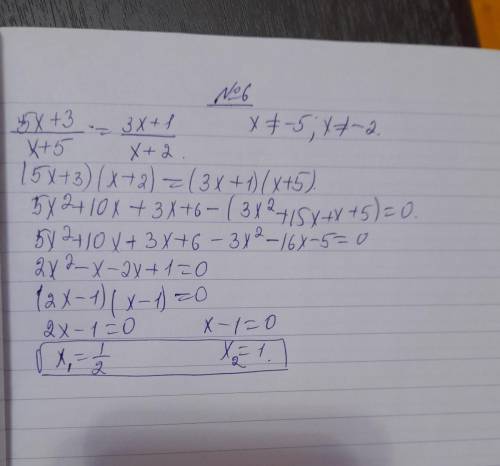 №6
5x+3/x+5 = 3x+1/x+2. x≠-5; x≠-2.
(5x+3)(x+2)=(3x+1)(x+5).
5x²+10x+3x+6-(3x²+15x+x+5)=0.
5x²+10x+3x+6-3x²-16x-5=0
2x²-x-2x+1=0
(2x-1)(x-1)=0
2x-1=0 x-1=0
x₁=1/2 x₂=1.